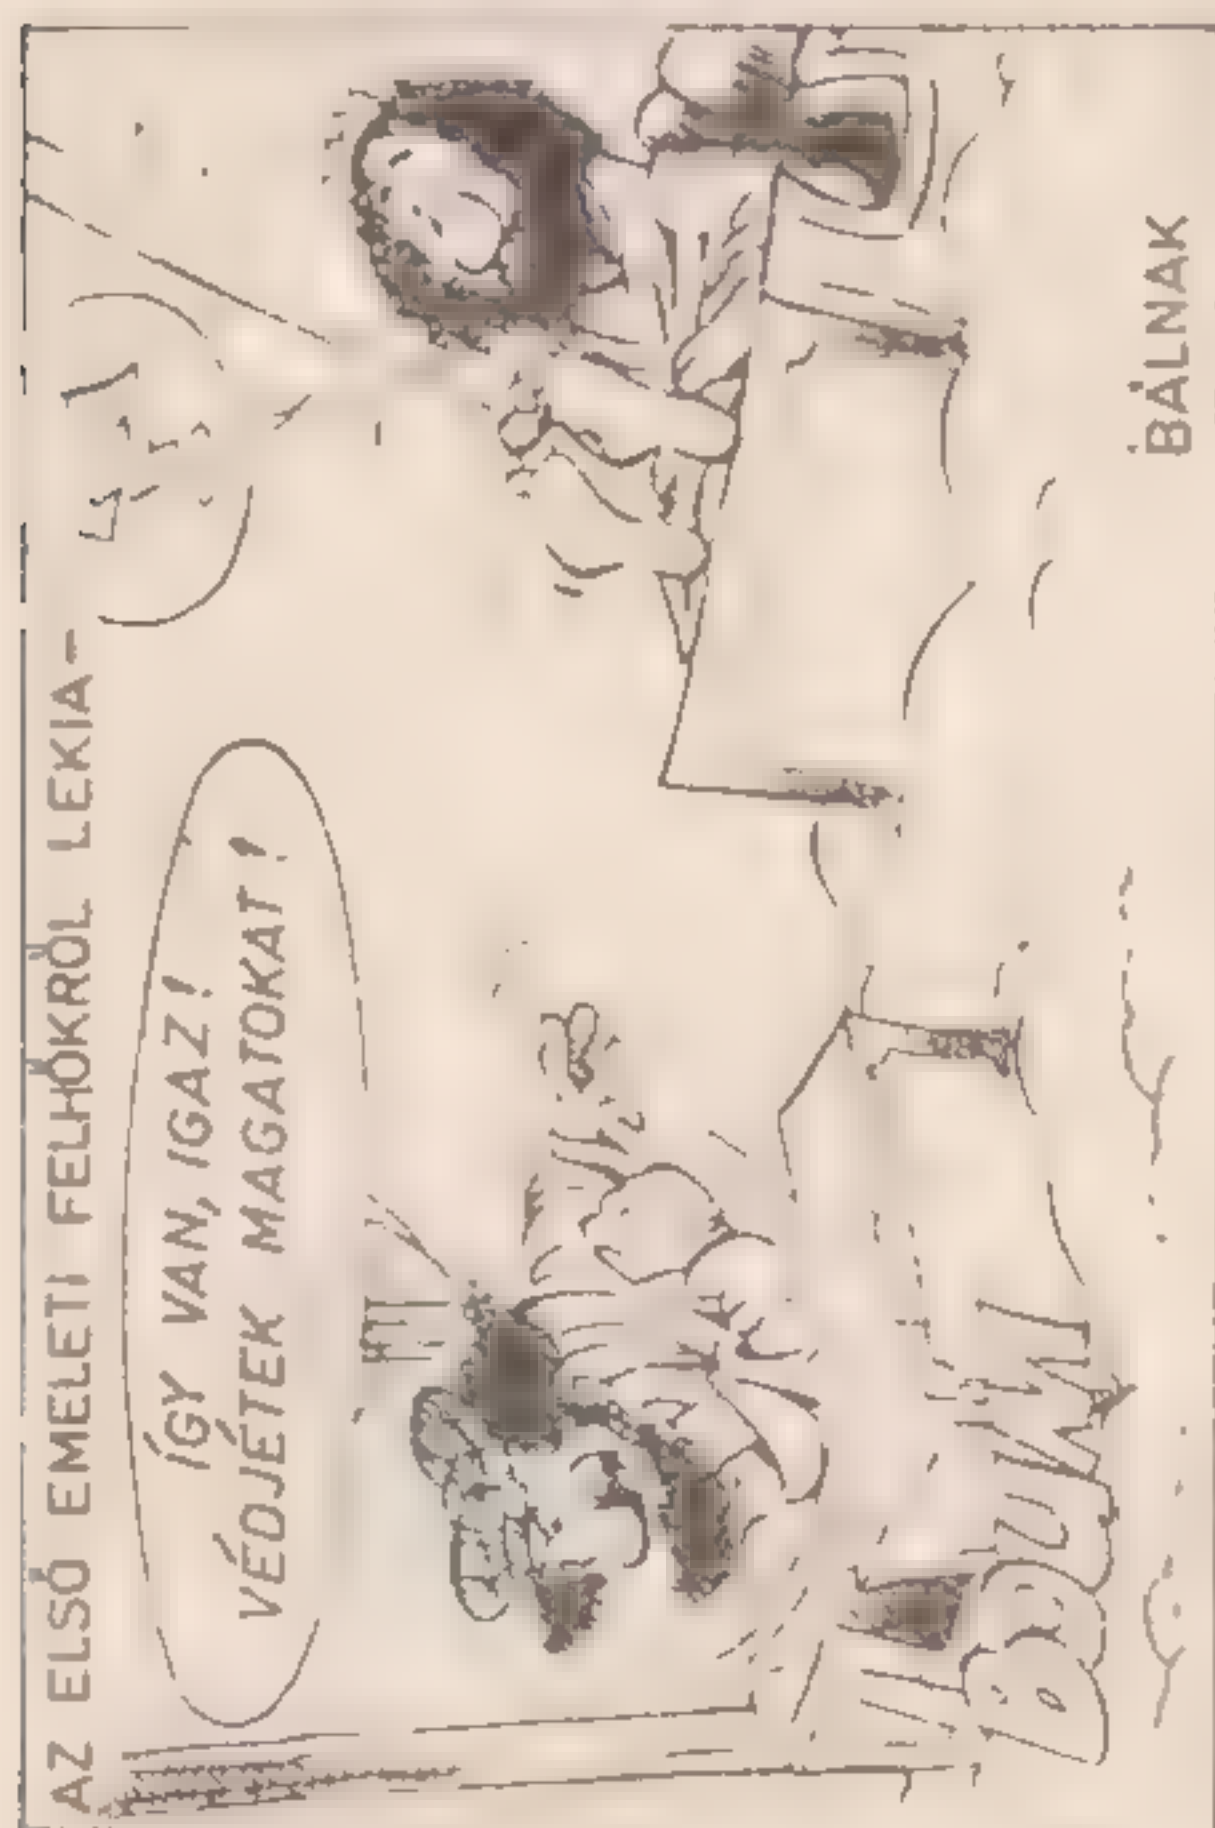 AZ ELSŐ EMELETI FELHŐKRŐL LEKIA-
ÍGY VAN, IGAZ!
VÉDJÉTEK MAGATOKAT!
BUMM
BÁLNAK